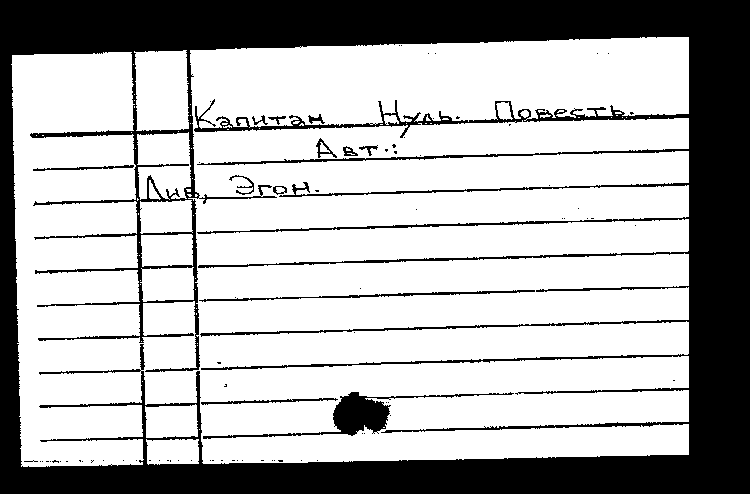 Капитан Нуль. Повесть.
Авт.:
Лив, Эгон.